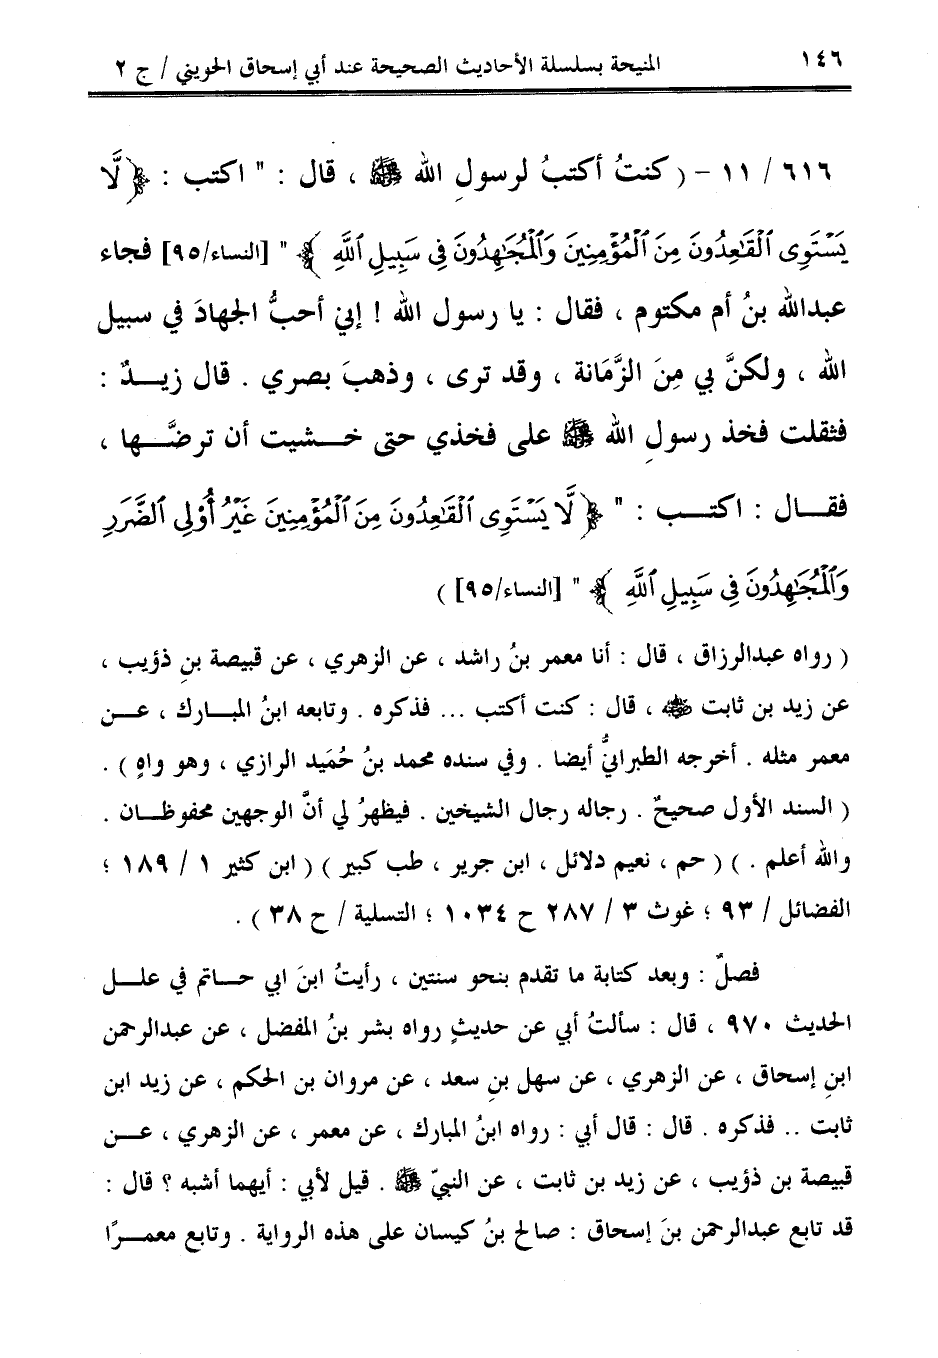 ١٤٦ المنيحة بسلسلة الأحاديث الصحيحة عند أبي إسحاق الحويني / ج ٢
٦١٦ / ١١ - ( كنتُ أكتبُ لرسولِ الله ﷺ ، قال : " اكتب : ﴿ لَّا
يَسْتَوِى ٱلْقَٰعِدُونَ مِنَ ٱلْمُؤْمِنِينَ وَٱلْمُجَٰهِدُونَ فِى سَبِيلِ ٱللَّهِ ﴾ " [النساء/٩٥] فجاء
عبدالله بنُ أم مكتوم ، فقال : يا رسول الله ! إني أحبُّ الجهادَ في سبيل
الله ، ولكنَّ بي مِنَ الزَّمَانة ، وقد ترى ، وذهبَ بصري . قال زيــدٌ :
فثقلت فخذ رسولِ الله ﷺ على فخذي حتى خــشيت أن ترضَّــها ،
فقــال : اكتــب : " ﴿ لَّا يَسْتَوِى ٱلْقَٰعِدُونَ مِنَ ٱلْمُؤْمِنِينَ غَيْرُ أُو۟لِى ٱلضَّرَرِ
وَٱلْمُجَٰهِدُونَ فِى سَبِيلِ ٱللَّهِ ﴾ " [النساء/٩٥] )
( رواه عبدالرزاق ، قال : أنا معمر بنُ راشد ، عن الزهري ، عن قبيصة بنِ ذؤيب ،
عن زيد بن ثابت رضي الله عنه ، قال : كنت أكتب ... فذكره . وتابعه ابنُ المبارك ، عــن
معمر مثله . أخرجه الطبرانيُّ أيضا . وفي سنده محمد بنُ حُمَيد الرازي ، وهو واهٍ ) .
( السند الأول صحيحٌ . رجاله رجال الشيخين . فيظهرُ لي أنَّ الوجهين محفوظــان .
والله أعلم . ) ( حم ، نعيم دلائل ، ابن جرير ، طب كبير ) ( ابن كثير ١ / ١٨٩ ؛
الفضائل / ٩٣ ؛ غوث ٣ / ٢٨٧ ح ١٠٣٤ ؛ التسلية / ح ٣٨ ) .
فصلٌ : وبعد كتابة ما تقدم بنحو سنتين ، رأيتُ ابنَ ابي حــاتم في علــل
الحديث ٩٧٠ ، قال : سألتُ أبي عن حديثٍ رواه بشر بنُ المفضل ، عن عبدالرحمن
ابنِ إسحاق ، عن الزهري ، عن سهل بنِ سعد ، عن مروان بن الحكم ، عن زيد ابن
ثابت .. فذكره . قال : قال أبي : رواه ابنُ المبارك ، عن معمر ، عن الزهري ، عــن
قبيصة بن ذؤيب ، عن زيد بن ثابت ، عن النبيّ ﷺ . قيل لأبي : أيهما أشبه ؟ قال :
قد تابع عبدالرحمن بنَ إسحاق : صالح بنُ كيسان على هذه الرواية . وتابع معمــرًا